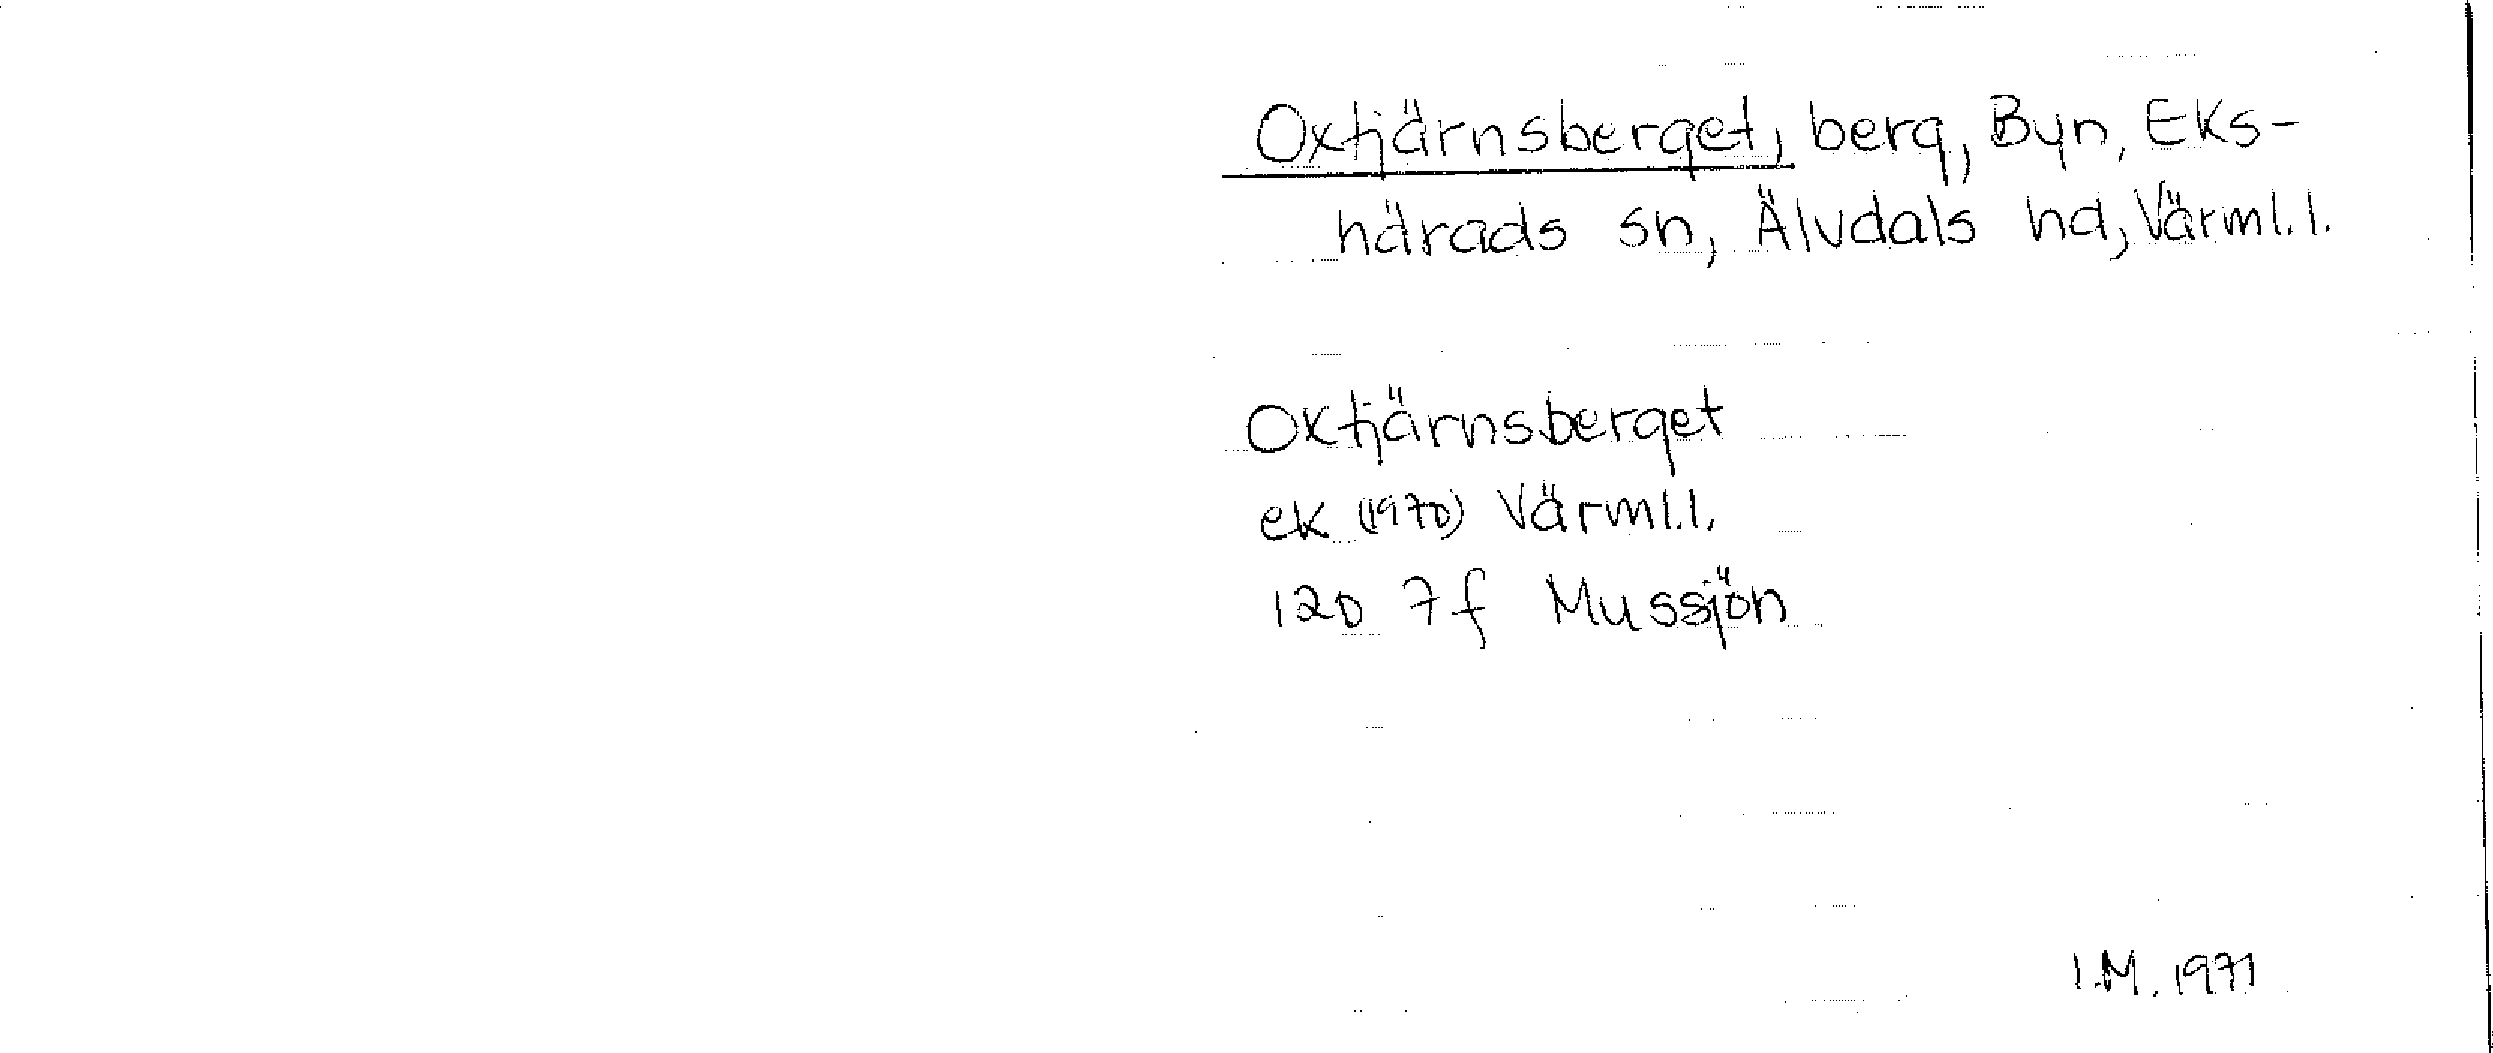 Oxtjärnsberget, berg, Byn, Eks-
härads sn, Älvdals hd, Värml.l.
Oxtjärnsberget
ek (1970) Värml.l.
12D 7f Mussjön
I.M. 1971